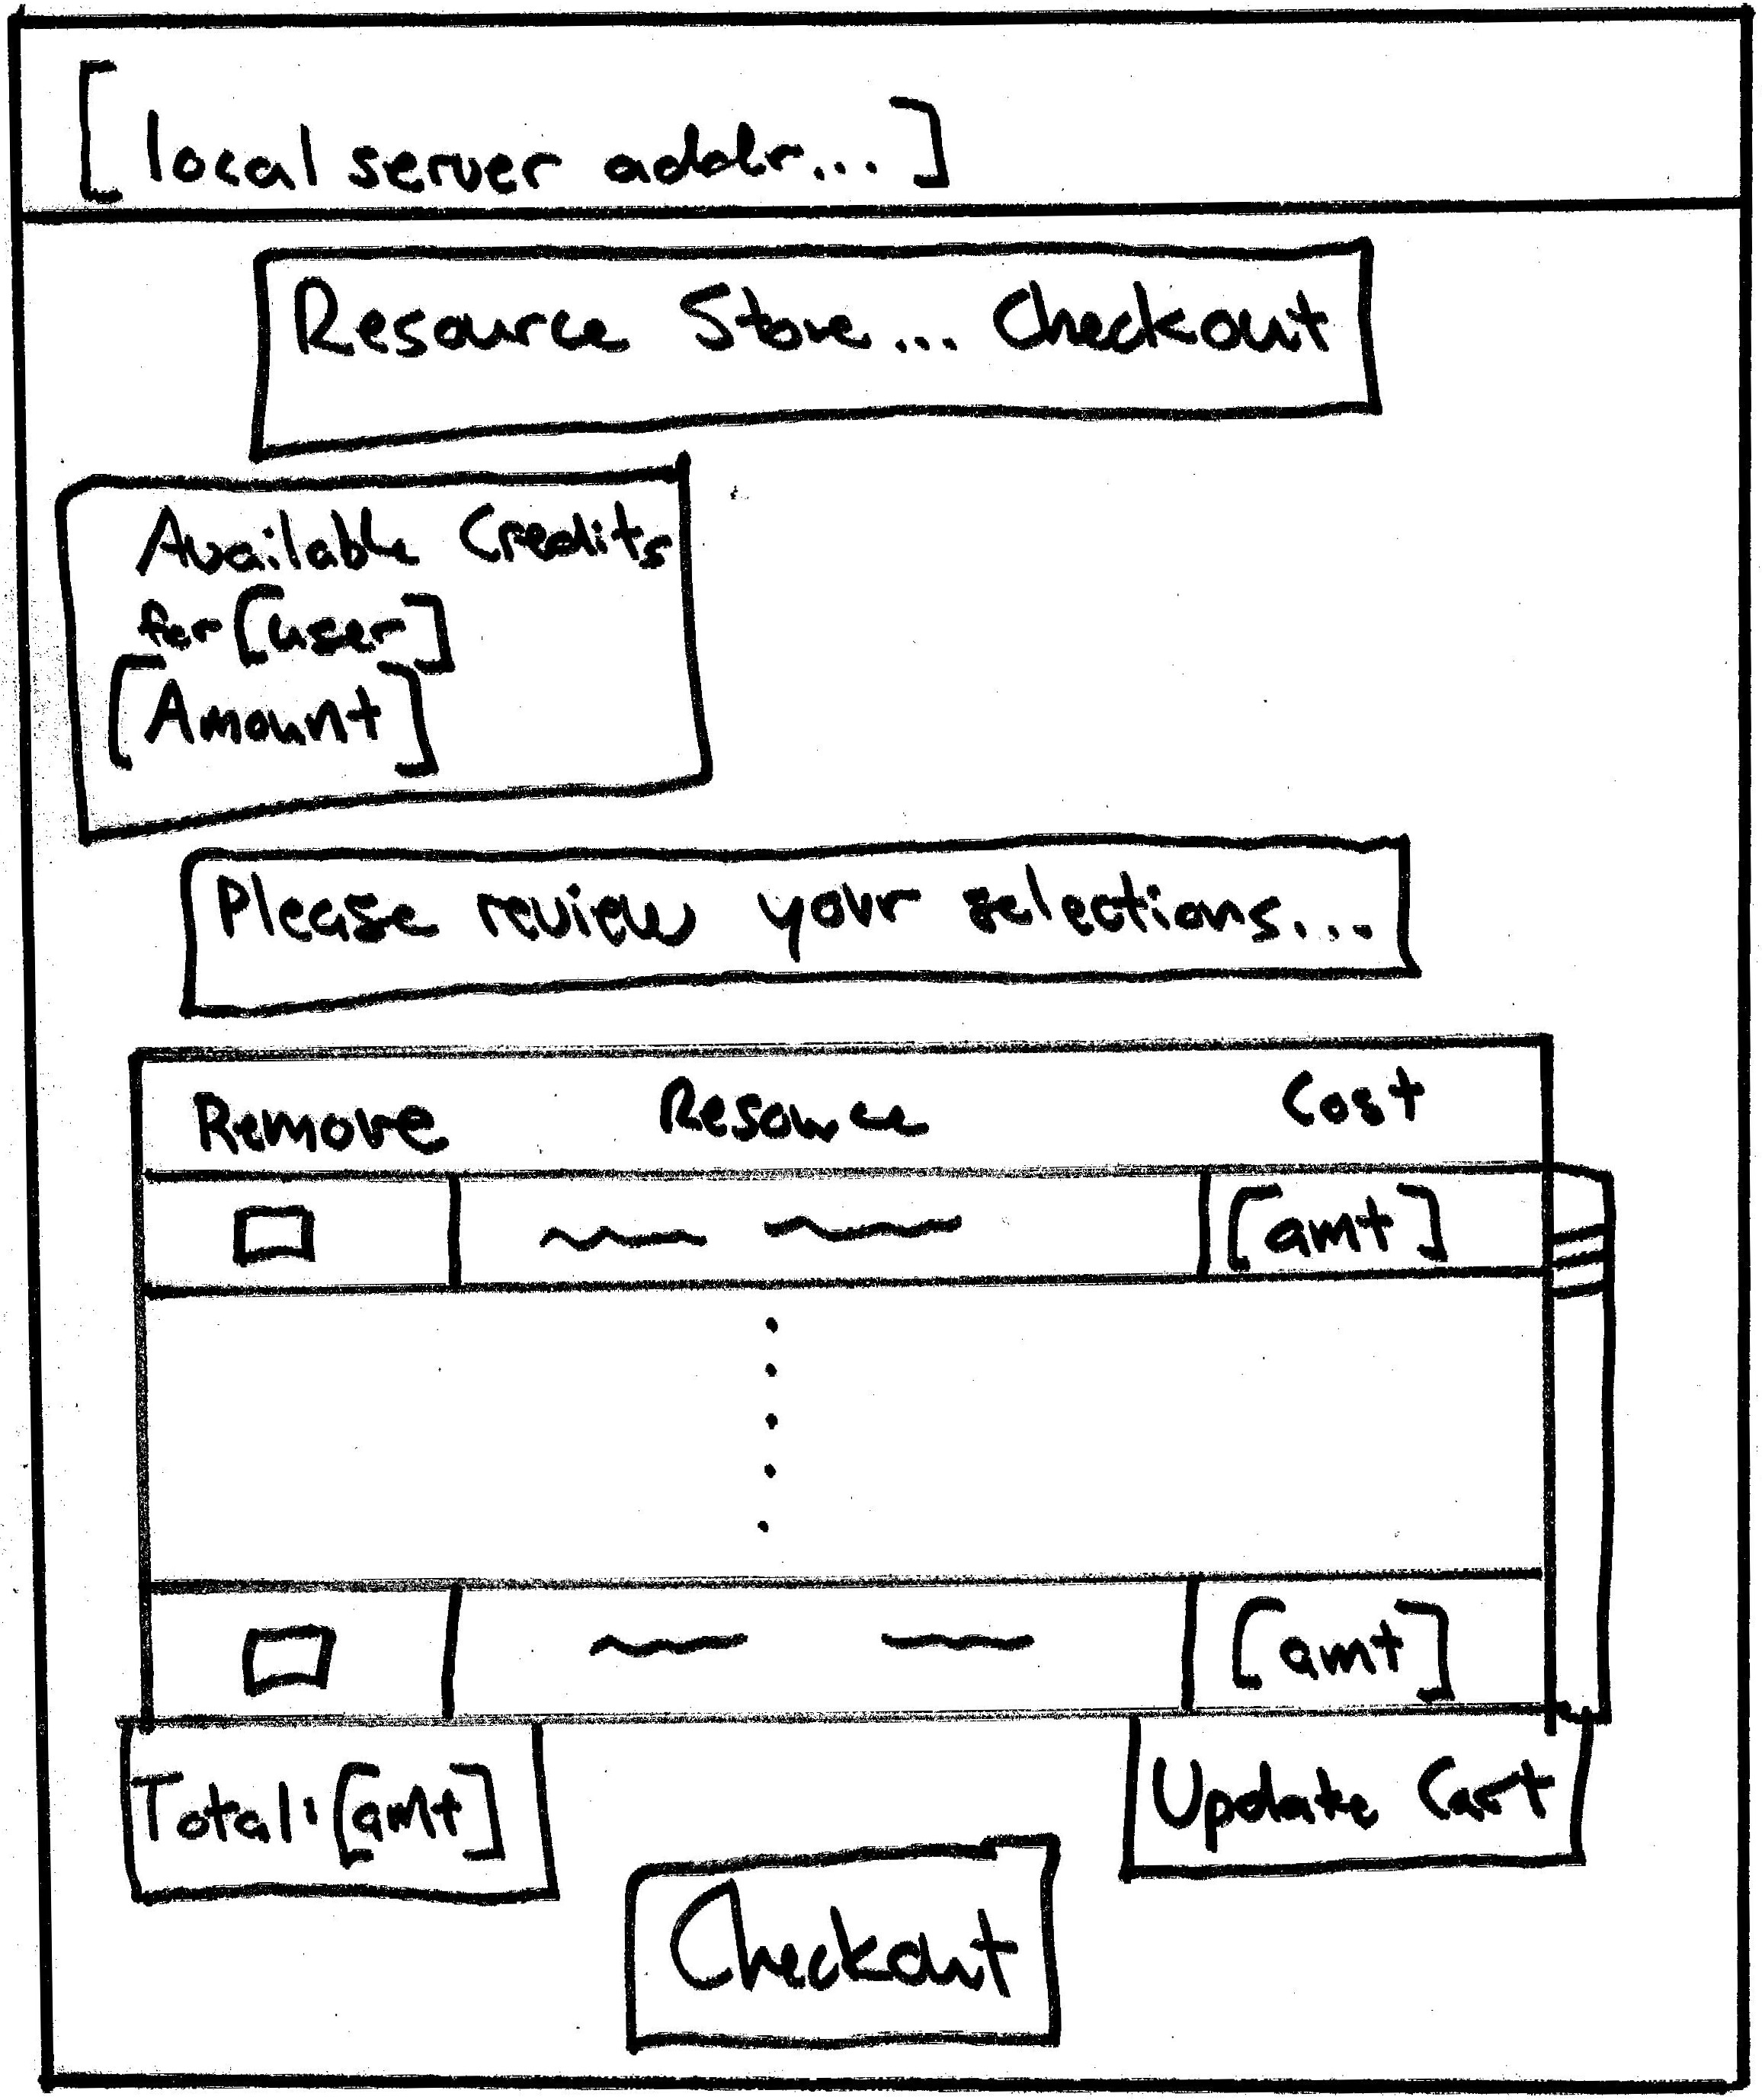 [local server addr...]
Resource Store... Checkout
Available Credits
for [user]
[Amount]
Please review your selections...
Remove Resource Cost
[amt]
[amt]
Total: [amt]
Update Cart
Checkout